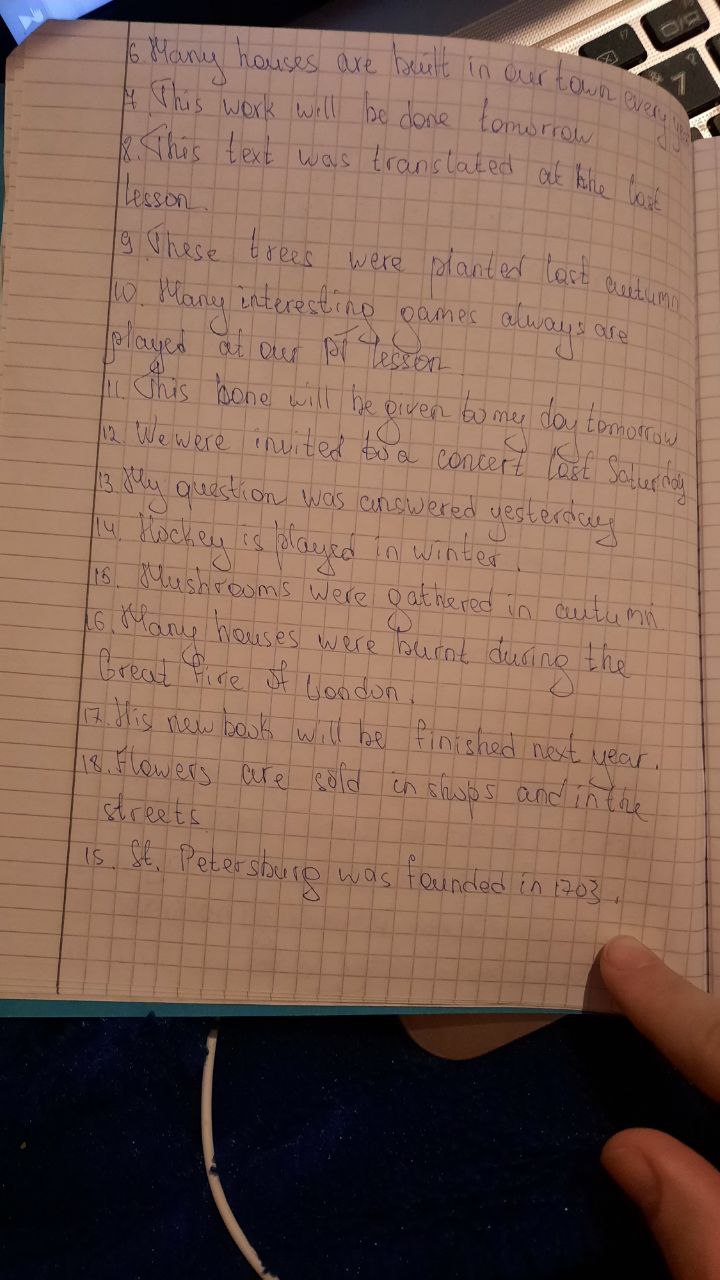 6 Many houses are built in our town every year
7. This work will be done tomorrow
8. This text was translated at the last
lesson.
9 These trees were planted last autumn
10. Many interesting games always are
played at our PT lesson
11. This bone will be given to my doy tomorrow
12. We were invited to a concert last Saturday
13 My question was answered yesterday
14. Hockey is played in winter.
15. Mushrooms were gathered in autumn
16. Many houses were burnt during the
Great Fire of London.
17. His new book will be finished next year.
18. Flowers are sold in shops and in the
streets
15. St. Petersburg was founded in 1703.